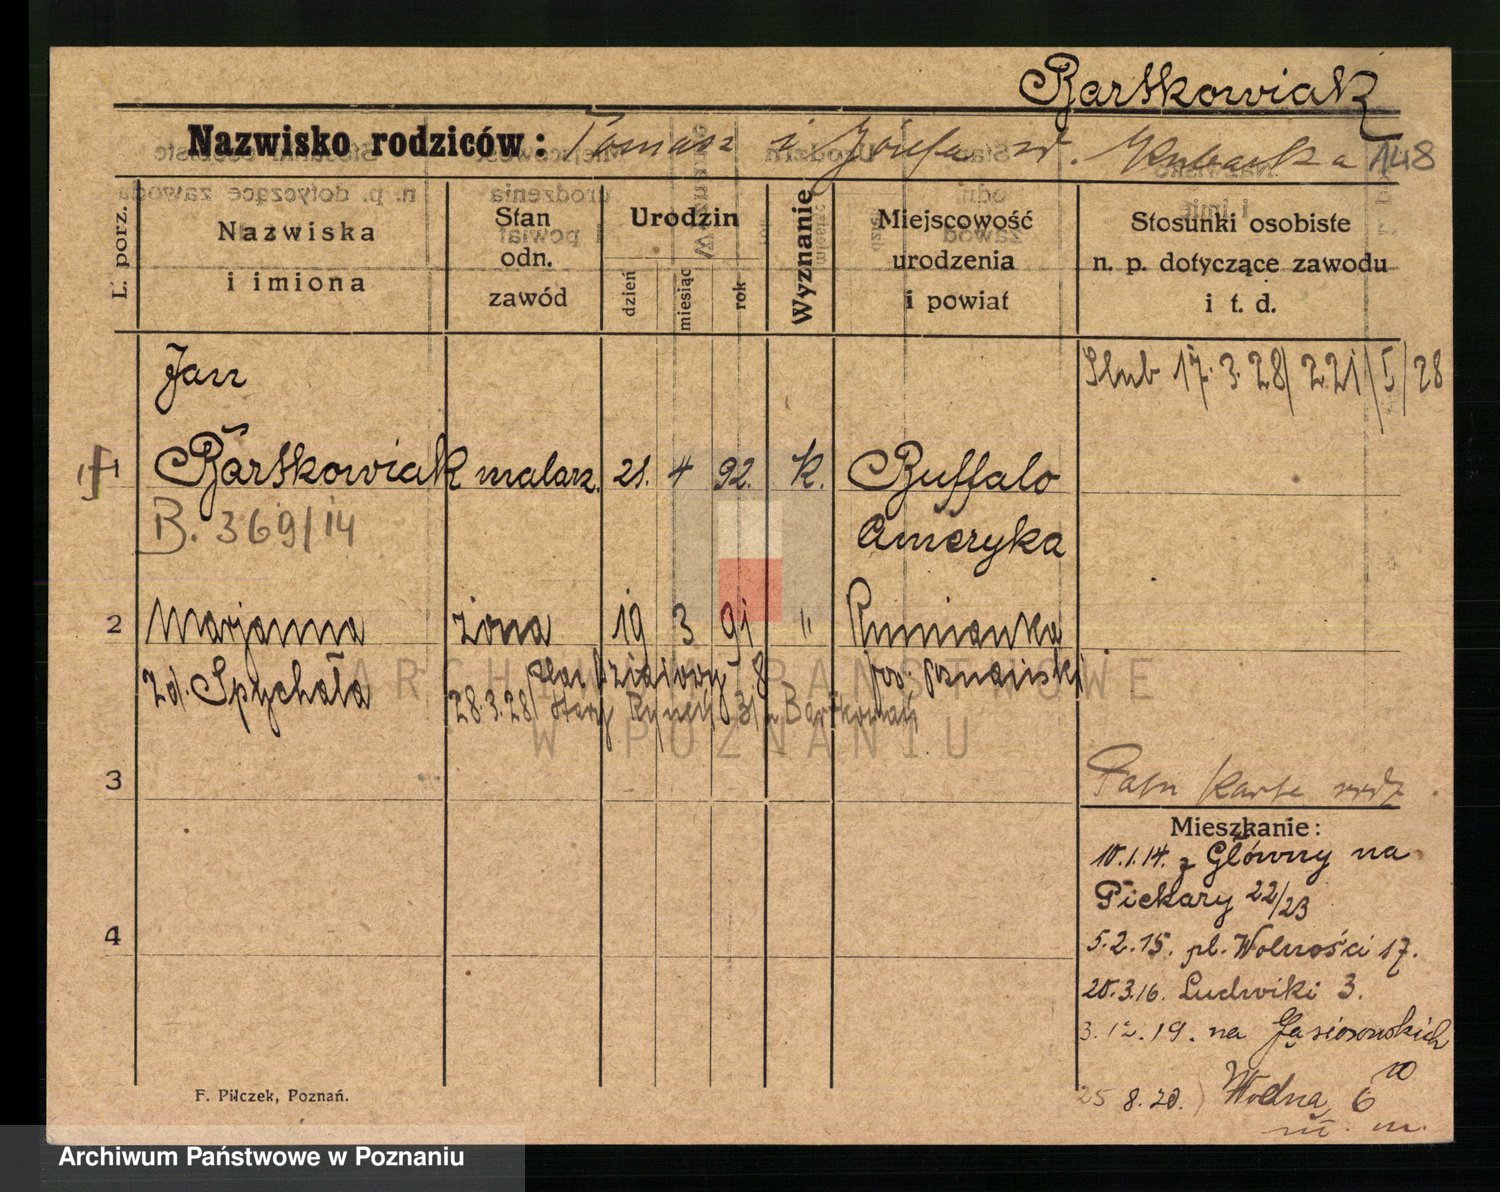 Bartkowiak
Nazwisko rodziców: Tomasz i Józefa zd. Kubacka 148
L. porz.
Nazwiska
i imiona
Stan
odn.
zawód
Urodzin
dzień
miesiąc
rok
Wyznanie
Miejscowość
urodzenia
i powiat
Stosunki osobiste
n. p. dotyczące zawodu
i t. d.
Jan
Ślub 17.3.28/221/5/28
1 Bartkowiak malarz. 21. 4 92. k. Buffalo
B. 369/14
Ameryka
2 Marjanna żona 19 3 91 "
zd. Spychała 8 pow. poznański
28.3.28/ Stary Rynek 31 u Bartkowiak
3
karta
Mieszkanie:
10.1.14. z Główny na
Piekary 22/23
4
5.2.15. pl. Wolności 17.
20.3.16. Ludwiki 3.
3.12.19. na Gąsiorowskich
10
25 8.20.) Wodna 6
III. m.
F. Pilczek, Poznań.
ARCHIWUM PAŃSTWOWE
W POZNANIU
Archiwum Państwowe w Poznaniu